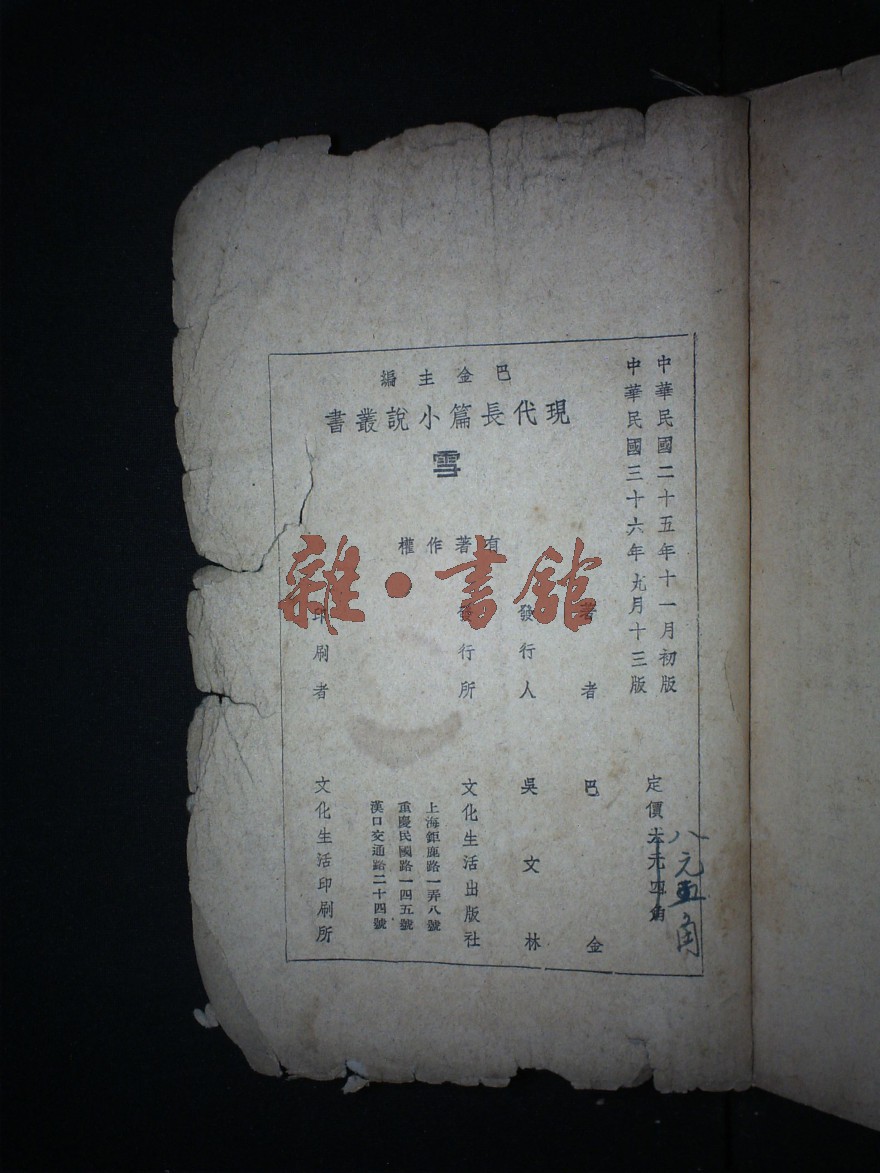 中華民國二十五年十一月初版
中華民國三十六年九月十三版
定價六元四角
八元五角
巴金主編
現代長篇小說叢書
雪
有著作權
著者 巴金
發行人 吳文林
發行所 文化生活出版社
上海鉅鹿路一弄八號
重慶民國路一四五號
漢口交通路二十四號
印刷者 文化生活印刷所
雜·書館